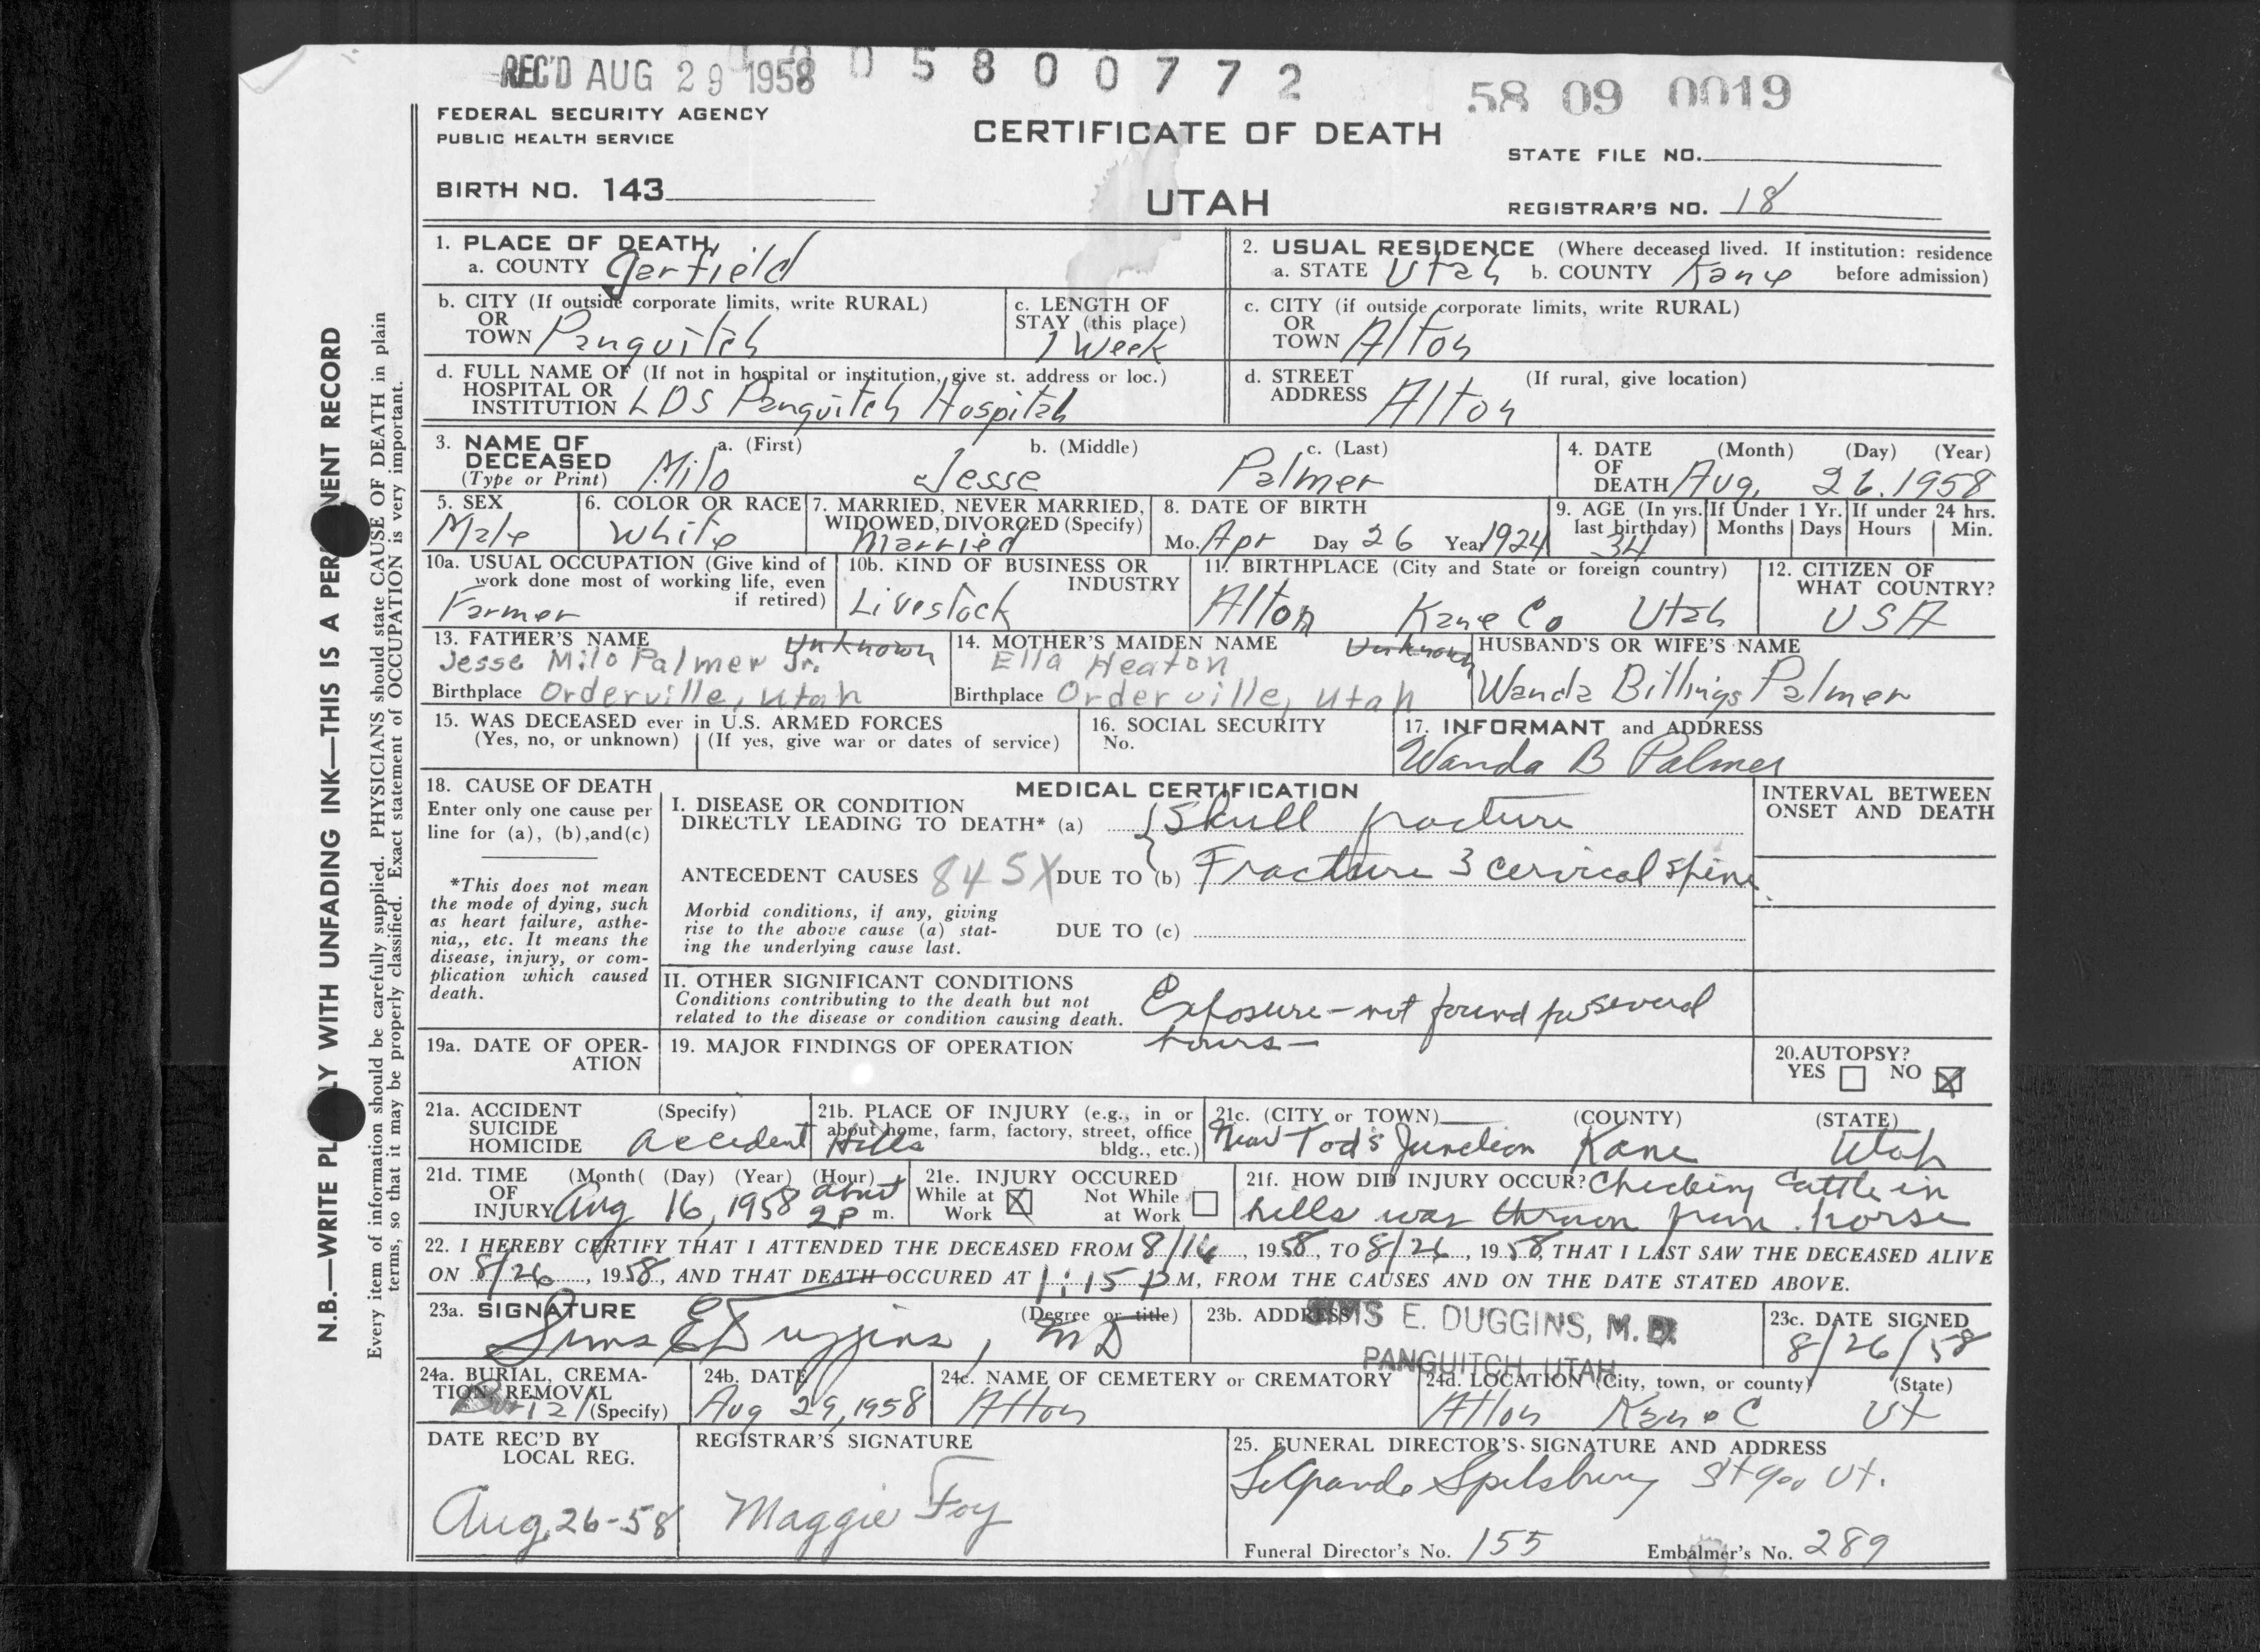 REC'D AUG 29 1958 0 5 8 0 0 7 7 2
58 09 0019
FEDERAL SECURITY AGENCY
PUBLIC HEALTH SERVICE
CERTIFICATE OF DEATH
STATE FILE NO.
BIRTH NO. 143
UTAH
REGISTRAR'S NO. 18
N.B.—WRITE PLAINLY WITH UNFADING INK—THIS IS A PERMANENT RECORD
Every item of information should be carefully supplied. PHYSICIANS should state CAUSE OF DEATH in plain
terms, so that it may be properly classified. Exact statement of OCCUPATION is very important.
1. PLACE OF DEATH
a. COUNTY Garfield
2. USUAL RESIDENCE (Where deceased lived. If institution: residence
a. STATE Utah b. COUNTY Kane before admission)
b. CITY (If outside corporate limits, write RURAL)
OR
TOWN Panguitch
c. LENGTH OF
STAY (this place)
1 Week
c. CITY (if outside corporate limits, write RURAL)
OR
TOWN Alton
d. FULL NAME OF (If not in hospital or institution, give st. address or loc.)
HOSPITAL OR
INSTITUTION LDS Panguitch Hospital
d. STREET (If rural, give location)
ADDRESS Alton
3. NAME OF a. (First) b. (Middle) c. (Last)
DECEASED
(Type or Print) Milo Jesse Palmer
4. DATE (Month) (Day) (Year)
OF
DEATH Aug. 26. 1958
5. SEX
Male
6. COLOR OR RACE
White
7. MARRIED, NEVER MARRIED,
WIDOWED, DIVORCED (Specify)
Married
8. DATE OF BIRTH
Mo. Apr Day 26 Year 1924
9. AGE (In yrs. If Under 1 Yr. If under 24 hrs.
last birthday) Months Days Hours Min.
34
10a. USUAL OCCUPATION (Give kind of
work done most of working life, even
if retired)
Farmer
10b. KIND OF BUSINESS OR
INDUSTRY
Livestock
11. BIRTHPLACE (City and State or foreign country)
Alton Kane Co Utah
12. CITIZEN OF
WHAT COUNTRY?
USA
13. FATHER'S NAME Unknown
Jesse Milo Palmer Jr.
Birthplace Orderville, Utah
14. MOTHER'S MAIDEN NAME Unknown
Ella Heaton
Birthplace Orderville, Utah
HUSBAND'S OR WIFE'S NAME
Wanda Billings Palmer
15. WAS DECEASED ever in U.S. ARMED FORCES
(Yes, no, or unknown) (If yes, give war or dates of service)
16. SOCIAL SECURITY
No.
17. INFORMANT and ADDRESS
Wanda B Palmer
18. CAUSE OF DEATH
Enter only one cause per
line for (a), (b),and(c)
*This does not mean
the mode of dying, such
as heart failure, asthe-
nia,, etc. It means the
disease, injury, or com-
plication which caused
death.
MEDICAL CERTIFICATION
INTERVAL BETWEEN
ONSET AND DEATH
I. DISEASE OR CONDITION
DIRECTLY LEADING TO DEATH* (a) Skull fracture
ANTECEDENT CAUSES 845X DUE TO (b) Fracture 3 cervical spine
Morbid conditions, if any, giving
rise to the above cause (a) stat-
ing the underlying cause last.
DUE TO (c)
II. OTHER SIGNIFICANT CONDITIONS
Conditions contributing to the death but not
related to the disease or condition causing death.
Exposure - not found for several
hours -
19a. DATE OF OPER-
ATION
19. MAJOR FINDINGS OF OPERATION
20. AUTOPSY?
YES NO X
21a. ACCIDENT (Specify)
SUICIDE
HOMICIDE accident
21b. PLACE OF INJURY (e.g., in or
about home, farm, factory, street, office
bldg., etc.)
Hills
21c. (CITY or TOWN) (COUNTY) (STATE)
Near Tod's Junction Kane Utah
21d. TIME (Month( (Day) (Year) (Hour)
OF
INJURY Aug 16, 1958 about 2 P m.
21e. INJURY OCCURED
While at Work X Not While at Work
21f. HOW DID INJURY OCCUR? Checking cattle in
hills was thrown from horse
22. I HEREBY CERTIFY THAT I ATTENDED THE DECEASED FROM 8/16, 1958, TO 8/26, 1958, THAT I LAST SAW THE DECEASED ALIVE
ON 8/26, 1958, AND THAT DEATH OCCURED AT 1:15 P M, FROM THE CAUSES AND ON THE DATE STATED ABOVE.
23a. SIGNATURE (Degree or title)
Sims E Duggins, MD
23b. ADDRESS
SIMS E. DUGGINS, M. D.
PANGUITCH, UTAH
23c. DATE SIGNED
8/26/58
24a. BURIAL, CREMA-
TION, REMOVAL
(Specify)
24b. DATE
Aug 29, 1958
24c. NAME OF CEMETERY or CREMATORY
Alton
24d. LOCATION (City, town, or county) (State)
Alton Kane C Ut
DATE REC'D BY
LOCAL REG.
Aug. 26-58
REGISTRAR'S SIGNATURE
Maggie Foy
25. FUNERAL DIRECTOR'S SIGNATURE AND ADDRESS
Spilsbury St Geo Ut.
Funeral Director's No. 155 Embalmer's No. 289